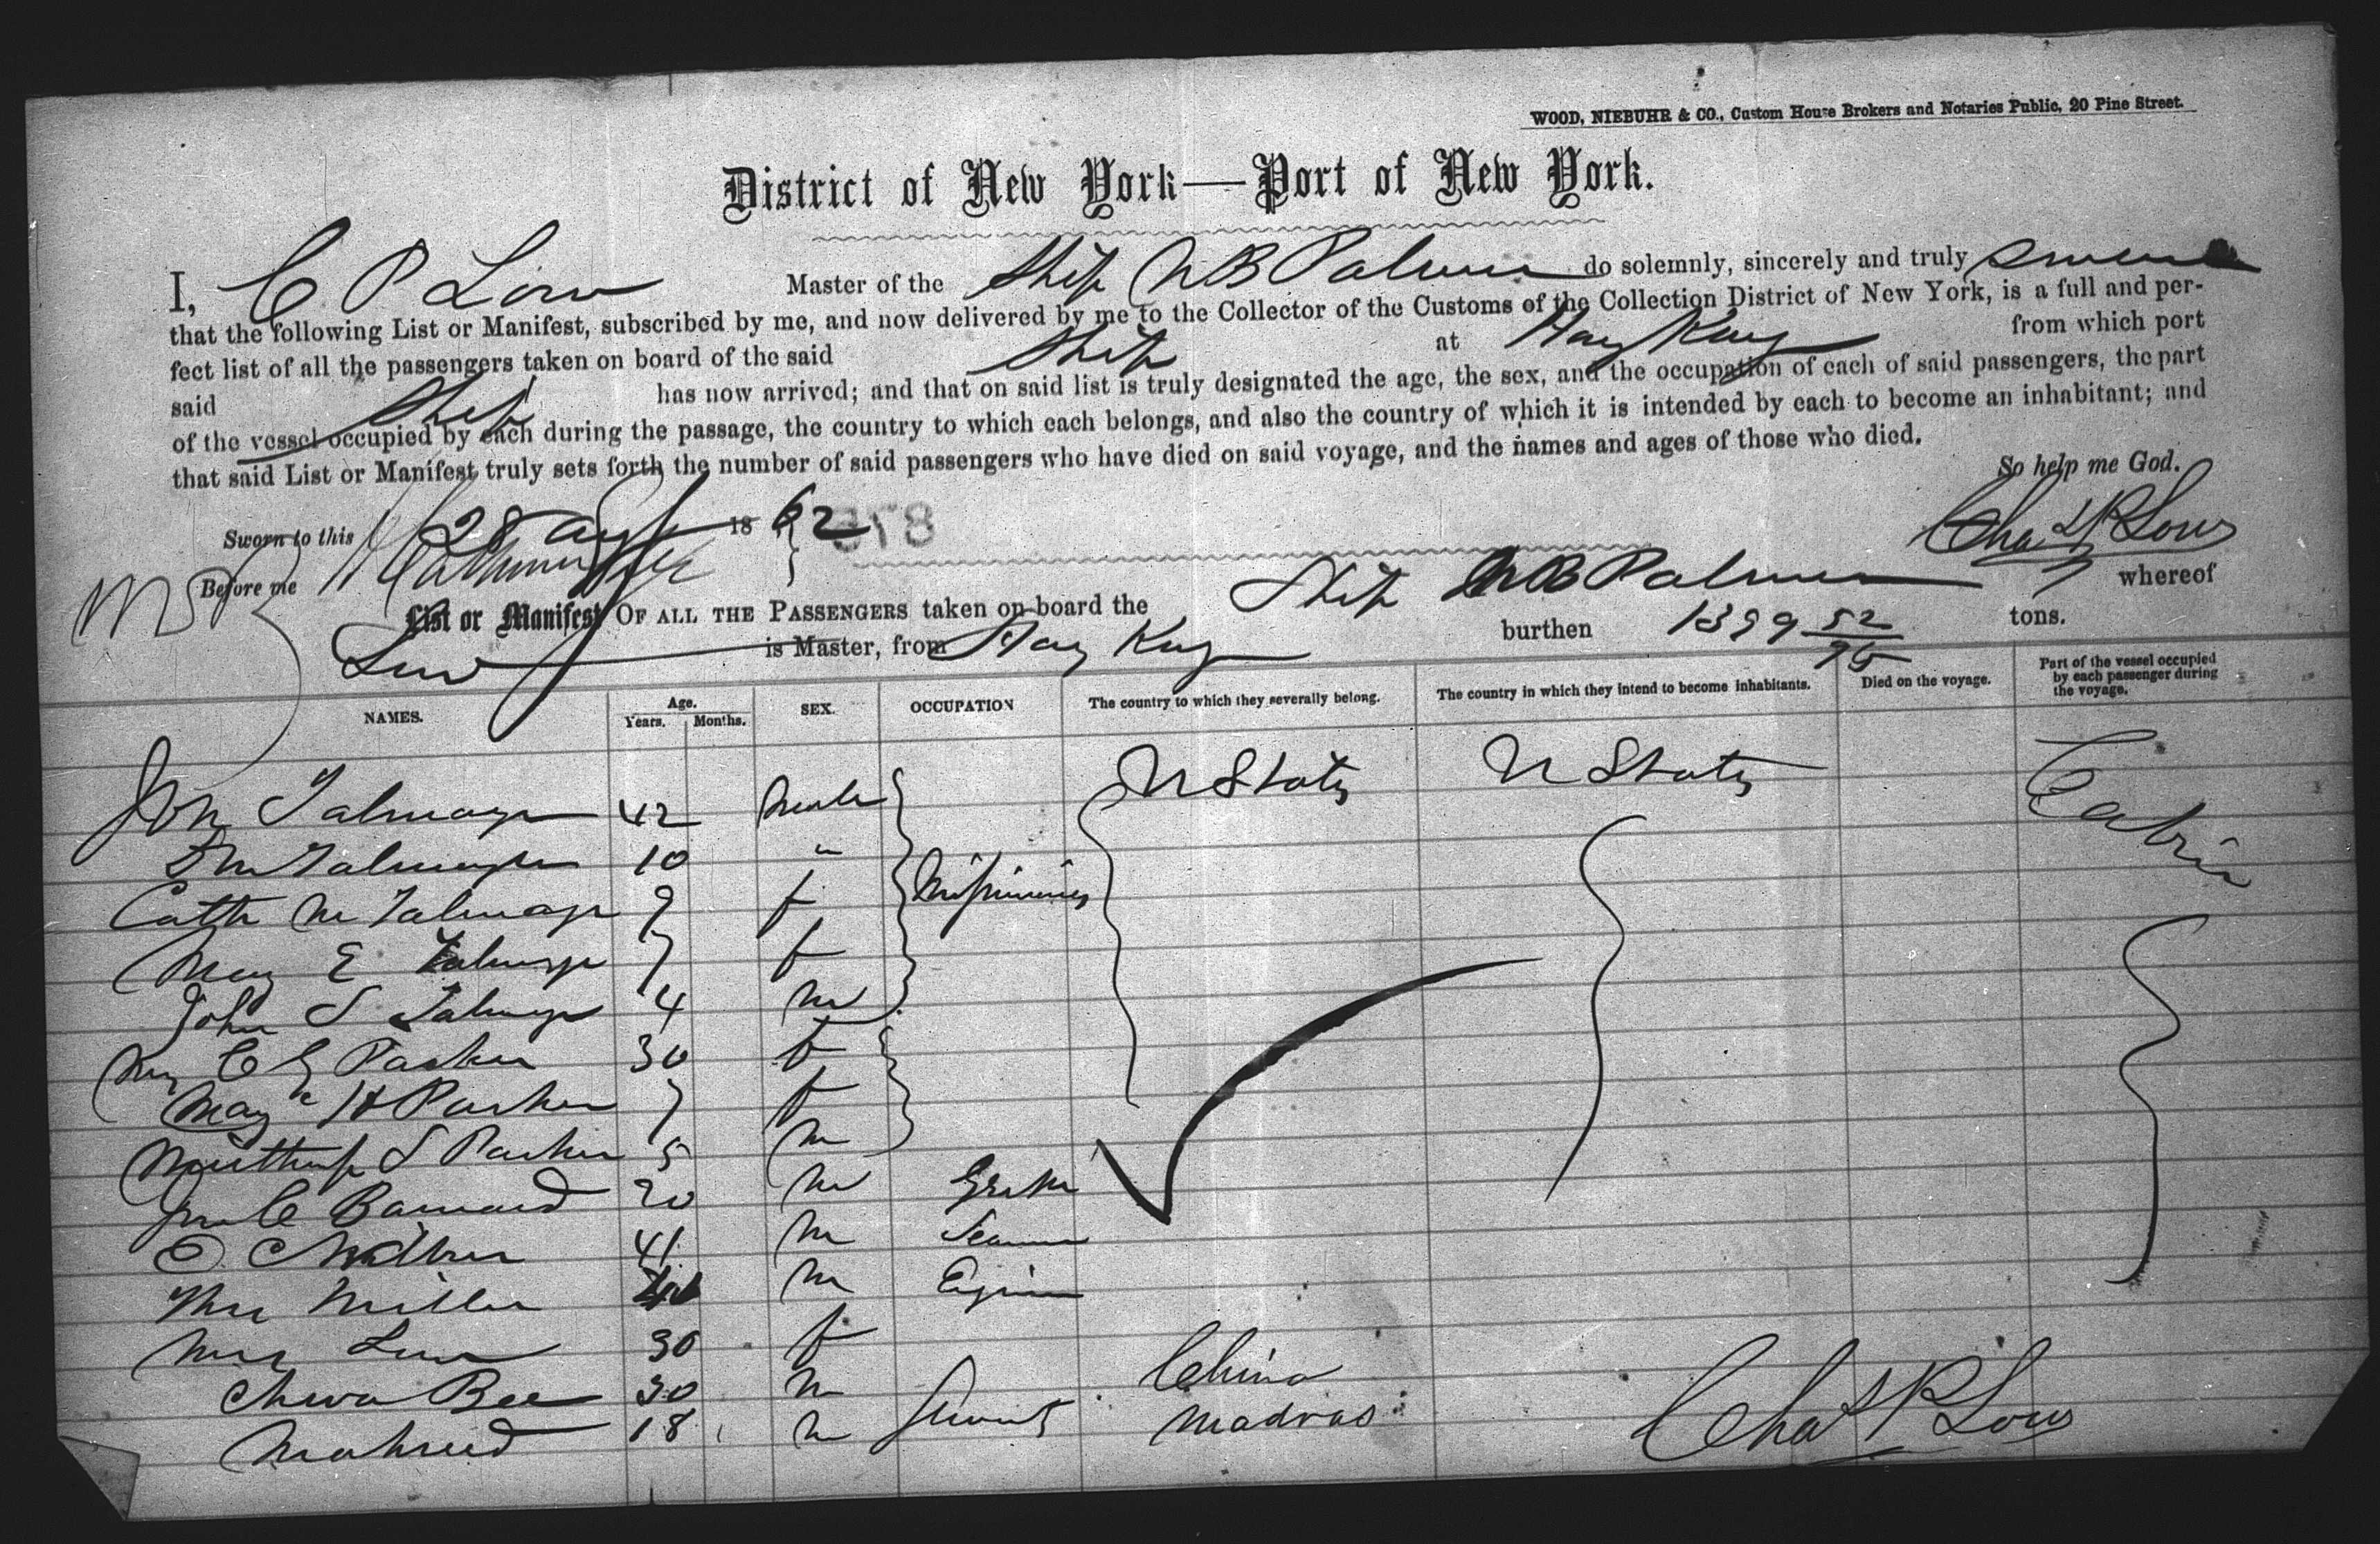 WOOD, NIEBUHR & CO., Custom House Brokers and Notaries Public, 20 Pine Street.
District of New York—Port of New York.
I, C P Low Master of the Ship N B Palmer do solemnly, sincerely and truly swear
that the following List or Manifest, subscribed by me, and now delivered by me to the Collector of the Customs of the Collection District of New York, is a full and per-
fect list of all the passengers taken on board of the said Ship at Hong Kong from which port
said Ship has now arrived; and that on said list is truly designated the age, the sex, and the occupation of each of said passengers, the part
of the vessel occupied by each during the passage, the country to which each belongs, and also the country of which it is intended by each to become an inhabitant; and
that said List or Manifest truly sets forth the number of said passengers who have died on said voyage, and the names and ages of those who died.
So help me God.
Sworn to this 28 Augt 1862 378 Chas P Low
Before me
List or Manifest OF ALL THE PASSENGERS taken on board the Ship N B Palmer whereof
Low is Master, from Hong Kong burthen 1399 52/95 tons.
NAMES. Age. Years. Months. SEX. OCCUPATION The country to which they severally belong. The country in which they intend to become inhabitants. Died on the voyage. Part of the vessel occupied by each passenger during the voyage.
Jon Talmage 42 Male U States U States Cabin
Talmage 10 "
Cath M Talmage 9 f Missionaries
May E Talmage 7 f
John S Talmage 4 m
Mrs C E Parker 30 f
May H Parker 7 f
Winthrop S Parker 5 m
Jno C Barnard 20 m
O. 41 m Seaman
Thos Miller m Engineer
Mrs Low 30 f
Chewa Bee 30 m China
Mahmed 18 m Servants Madras
Chas P Low